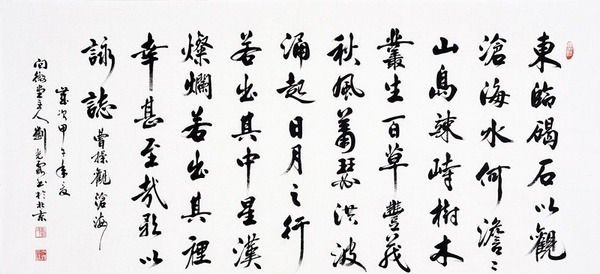 東臨碣石以觀
滄海水何澹〻
山島竦峙樹木
叢生百草豐茂
秋風蕭瑟洪波
涌起日月之行
若出其中星漢
燦爛若出其裡
幸甚至哉歌以
詠誌 曹操觀滄海
歲次甲午年夏
堂主人劉光書於北京